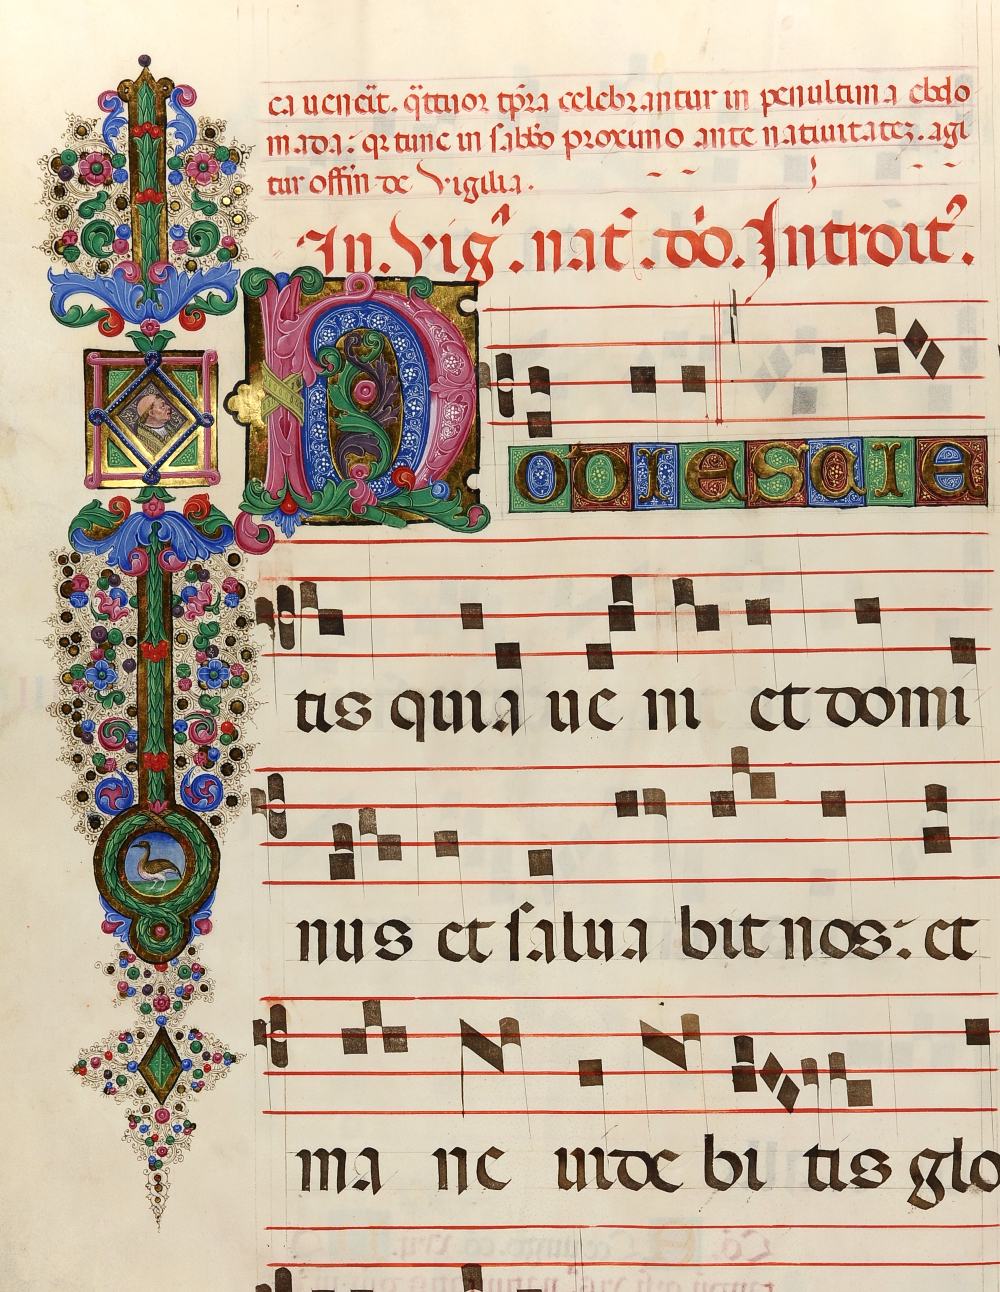 ca uencit. q̃ttuor tp̃ra celebrantur in penultima ebdo
mada: qr tunc in sabb̃o proximo ante natiuitatez. agi
tur offm̃ de Vigilia.
In. Vig̃. nat̃. dõ. Introit̃.
Hodie scie
tis quia ue ni et domi
nus et salua bit nos: et
ma ne uide bi tis glo